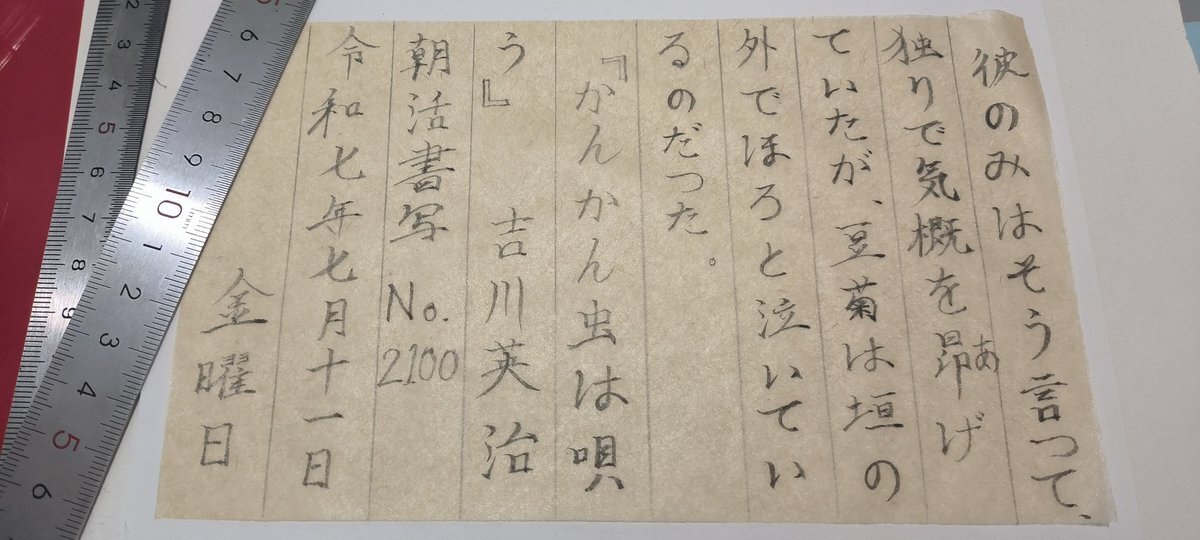 彼のみはそう言つて、
独りで気概を昂あげ
ていたが、豆菊は垣の
外でほろと泣いてい
るのだつた。
『かんかん虫は唄
う』　吉川英治
朝活書写 No.2100
令和七年七月十一日
金曜日
2 3 4 5 6 7 8 9
5 6 7 8 9 10 1 2 3 4 5 6